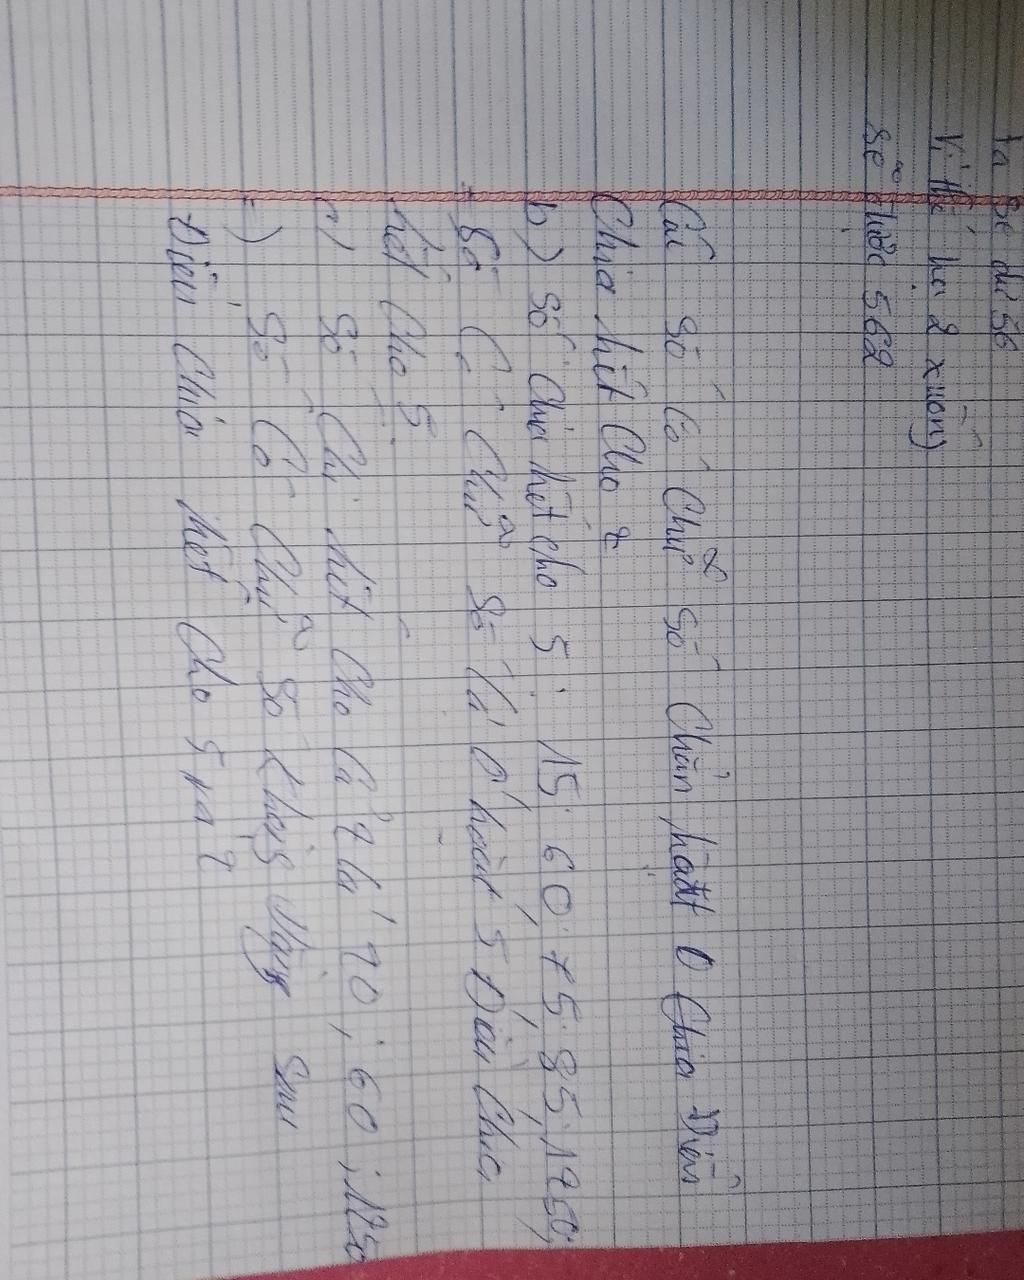 ta sẽ dư số
Vì thế ha 2 xuống
Sẽ được 562
Các số có chữ số Chẵn hoặt 0 Chia Điều
Chia hết Cho 2
b) số Chia hết cho 5: 15; 60; 75; 85; 1250;
- Số Có Chữ số là 0 hoặc 5 Điều Chia
hết Cho 5
c) Số Chi hết Cho Cả 2 là 20; 60; 1250
=) Số Có Chữ số Hàng Sau
Điều Chia hết Cho 5 và 2